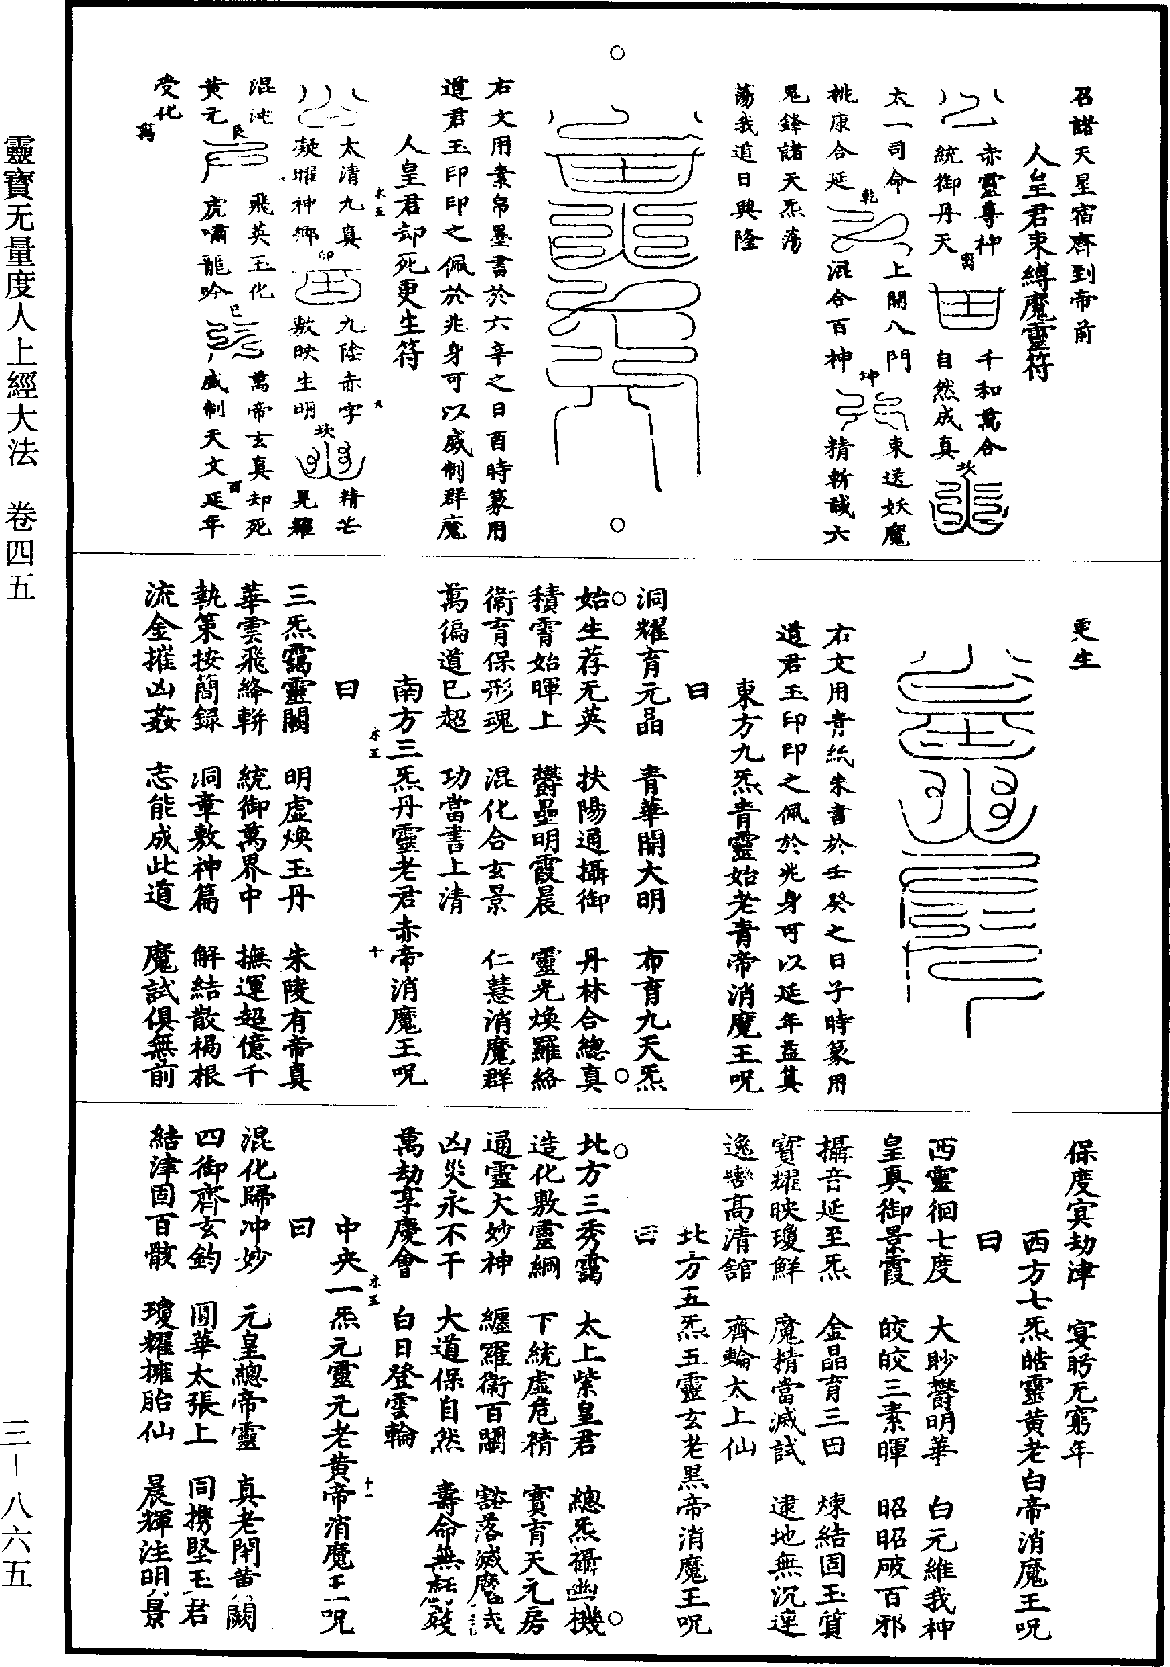 召諸天星宿齊到帝前
人皇君束縛魔靈符
赤靈尊神
統御丹天
千和萬合
自然成真
坎
太一司命
桃康合延
乾
上開八門
混合百神
坤
束送妖魔
精斬馘六
鬼鋒諸天炁蕩
蕩我道日興隆
右文用素帛墨書於六辛之日酉時篆用
道君玉印印之佩於兆身可以威制群魔
人皇君却死更生符
太清九真
凝曜神鄉
卯
九陰赤字
敷映生明
坎
精芒
晃耀
混沌
黃元
艮
飛英玉化
虎嘯龍吟
巳
萬帝玄真却死
威制天文延年
酉
受化
更生
右文用青紙朱書於壬癸之日子時篆用
道君玉印印之佩於兆身可以延年益筭
東方九炁青靈始老青帝消魔王呪
曰
洞耀育元晶　青華開大明　布育九天炁
始生荐无英　扶陽通攝御　丹林合總真
積霄始暉上　鬱壘明霞晨　靈光煥羅絡
衛育保形魂　混化合玄景　仁慧消魔群
萬徧道已超　功當書上清
南方三炁丹靈老君赤帝消魔王呪
曰
三炁靄靈關　明虛煥玉丹　朱陵有帝真
華雲飛絳軿　統御萬界中　撫運超億千
執策按簡錄　洞章敷神篇　解結散禍根
流金摧凶姦　志能成此道　魔試俱無前
保度冥劫津　宴盻无窮年
西方七炁皓靈黃老白帝消魔王呪
曰
西靈徊七度　大眇鬱明華　白元維我神
皇真御景霞　皎皎三素暉　昭昭破百邪
攝音延至炁　金晶育三田　煉結固玉質
寶耀映瓊鮮　魔精當滅試　逮地無沉連
逸轡高清館　齊輪太上仙
北方五炁五靈玄老黑帝消魔王呪
曰
北方三秀靄　太上紫皇君　總炁禠幽機
造化敷靈綱　下統虛危精　寶育天元房
通靈大妙神　纏羅衛百關　豁落滅魔試
凶災永不干　大道保自然　壽命無乾毀
萬劫享慶會　白日登雲輪
中央一炁元靈元老黃帝消魔王呪
曰
混化歸冲妙　元皇總帝靈　真老閉黃闕
四御齊玄鈞　圓華太張上　同攜堅玉君
結津固百骸　瓊耀擁胎仙　晨輝注明景
靈寶无量度人上經大法　卷四五
三－八六五